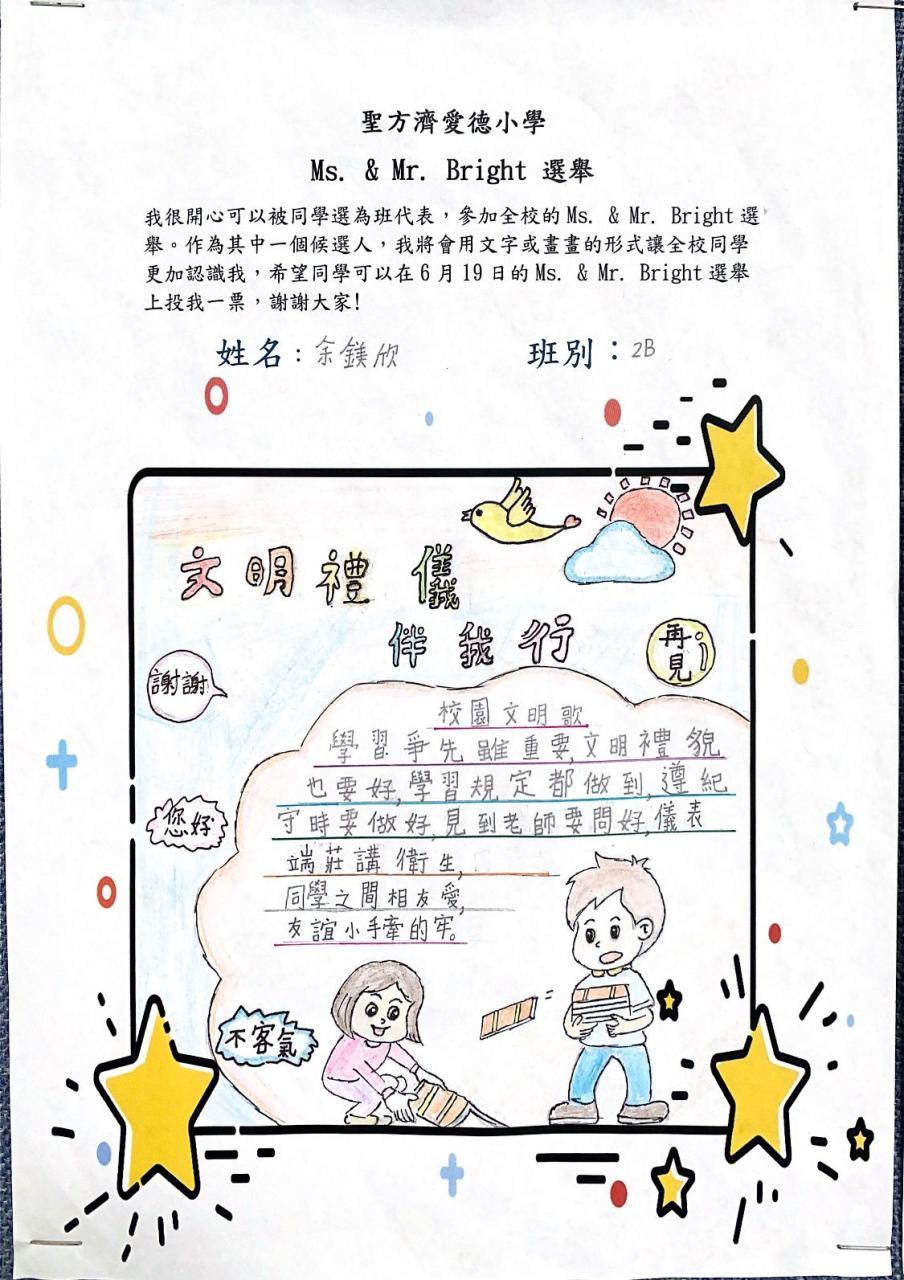 聖方濟愛德小學
Ms. & Mr. Bright 選舉
我很開心可以被同學選為班代表，參加全校的 Ms. & Mr. Bright 選
舉。作為其中一個候選人，我將會用文字或畫畫的形式讓全校同學
更加認識我，希望同學可以在 6 月 19 日的 Ms. & Mr. Bright 選舉
上投我一票，謝謝大家!
姓名：余鎂欣 班別：2B
文明禮儀
伴我行
再見
謝謝
校園文明歌
學習爭先雖重要,文明禮貌
也要好,學習規定都做到,遵紀
守時要做好,見到老師要問好,儀表
端莊講衛生,
同學之間相友愛,
友誼小手牽的牢。
您好
不客氣